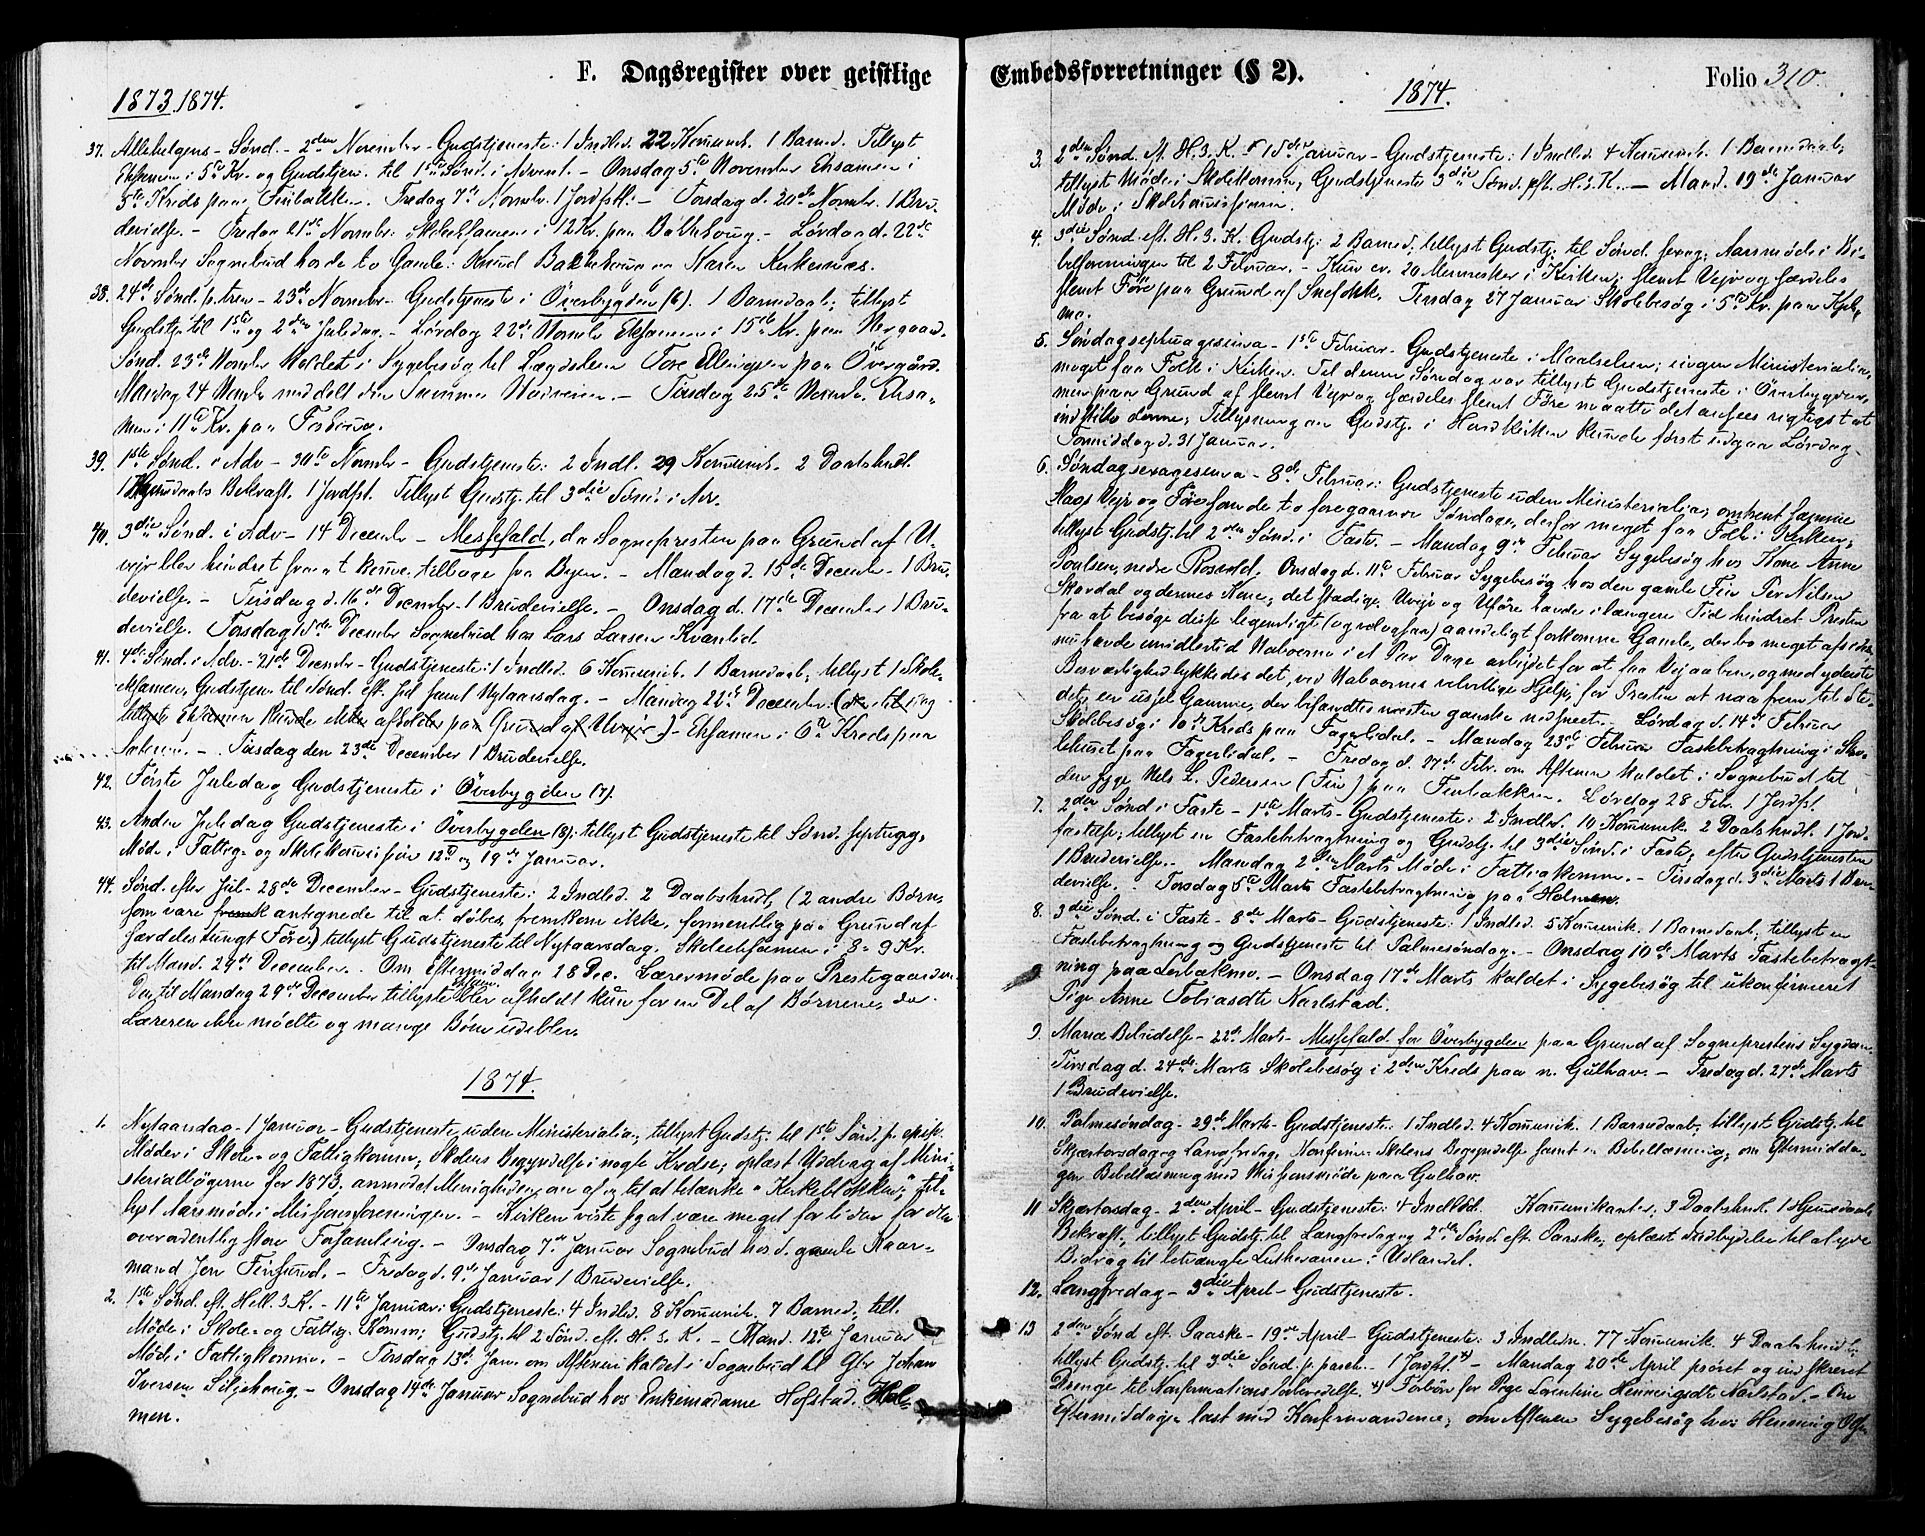 F. Dagsregister over geistlige
1873.1874.
37. Allehelgens - Sønd. - 2den November - Gudstjeneste: 1 Indled. 22 Komunik. 1 Barned. Tillyst
Eksamen i 5te Kr. og Gudstjen. til 1ste Sønd. i Advent. - Onsdag 5te November Eksamen i
5te Kreds paa Finbakken. Fredag 7de Novmbr. 1 Jordfst. - Torsdag d. 20de Novmbr. 1 Bru-
devielse. - Fredag 21de Novmbr. Skoleeksamen i 12 Kr. paa Bakkehoug. - Lørdag d. 22de
Novmber Sognebud hos de to Gamle: Knud Bakkehoug og Karen Kirkesnes.
38. 24de Sønd. p. tren - 23de Novmbr - Gudstjeneste i Överbygden (6). 1 Barnedaab; tillyst
Gudstj. til 1ste og 2den Juledag. - Lørdag 22de Novmbr Eksamen i 15de Kr. paa Nergaard
Sønd. 23de Novmbr Kaldet i Sygebesøg til Lægdslem Tore Ellingsen paa Övergård.
Mandag 24 Novmbr meddelt den Samme Nadveren. - Tirsdag 25de Novmb. Eksa-
men i 11te Kr. paa
39. 1ste Sønd. i Adv - 30te Novmbr - Gudstjeneste: 2 Indl. 29 Komunik. 2 Daabshndl.
1 Hjemdaabs Bekræft. 1 Jordfst. Tillyst Gudstj. til 3die Sønd. i Adv.
40. 3die Sønd. i Adv - 14 Decembr - Messefald, da Sognepresten paa Grund af U-
vejr blev hindret fra at komme tilbage fra Byen. - Mandag d. 15de Decembr - 1 Bru-
devielse. - Tirsdag d. 16de December - 1 Brudevielse. - Onsdag d. 17de December 1 Bru-
devielse. Torsdag 18de Decembr Sognebud hos Lars Larsen Kvanlid.
41. 4de Sønd. i Adv. - 21de Decembr - Gudstjeneste: 1 Indled. 6 Komunik. 1 Barnedaab, tillyst 1 Skole-
eksamen, Gudstjen. til Sønd. eft. Jul samt Nytaarsdag. - Mandag 22de December (
tillyste Eksamen kunde ikke afholdes paa Grund af Uvejr) - Eksamen i 6te Kreds paa
. - Tirsdag den 23de December 1 Brudevielse.
42. Første Juledag Gudstjeneste i Överbygden (7).
43. Anden Juledag Gudstjeneste i Överbygden (8); tillyst Gudstjeneste til Sønd. septuag,
Møde i Fattig- og Skolekommission 12te og 19de Januar.
44. Sønd. efter Jul - 28de December - Gudstjeneste: 2 Indled. 2 Daabshndl, (2 andre Børn
som vare antegnede til at døbes, fremkom ikke, formentlig paa Grund af
færdeles tungt Føre.) tillyst Gudstjeneste til Nytaarsdag. Skoleeksamen i 8 - 9 Kr.
til Mand. 29de December. Om Eftermiddag 28 Dec. Lærermøde paa Prestegaarden.
Den til Mandag 29de December tillyste Eksam. blev afholdt kun for en Del af Børnene, da
Læreren ikke mødte og mange Børn udebleve.
1874.
1. Nytaarsdag - 1 Januar - Gudstjeneste uden Ministerialia; tillyst Gudstj. til 1ste Sønd. p. epiph.
Møder i Skole- og Fattigkomm; Skolens Begyndelse i nogle Kredse; oplæst Uddrag af Mini-
sterialbøgerne for 1873. anmodet Menigheden om af og til at betænke "Kirkeblokken;" til-
lyst Aarsmøde i Missionsforeningen. - Kirken viste sig at være meget for liden for den
overordentlig store Forsamling. - Onsdag 7de Januar Sognebud hos d. gamle Kaar-
mand Jon Finsund. - Fredag d. 9de Januar 1 Brudevielse.
2. 1ste Sønd. eft. Hell. 3 K. - 11te Januar: Gudstjeneste: 4 Indled. 8 Komunik. 7 Barned; till.
Møde i Skole- og Fattig-Komm; Gudstj. til 2 Sønd. eft. H. 3. K. - Mand. 12te Januar
Møde i Fattigkomm. - Tirsdag 13de Jan. om Aftenen kaldet i Sognebud til Gbr Johan
Iversen Siljehaug, - Onsdag 14de Januar Sognebud hos Enkemadame Hofstad. Hol-
men.
Embedsforretninger (§ 2).
1874.
Folio 310.
3. 2den Sønd. ef. H. 3. K. - 18de Januar - Gudstjeneste: 1 Indled. 4 Komunik. 1 Barnedaab;
tillyst Møde i Skolekommis, Gudstjeneste 3die Sønd. eft. H. 3. K. - Mand. 19de Januar
Møde i Skolekommissionen.
4. 3die Sønd. eft. H. 3. K. Gudstj: 2 Barned; tillyst Gudstj. til Sønd. sexag; Aarsmøde i Bi-
belforeningen til 2 Februar. - Kun ca. 20 Mennesker i Kirken; slemt Vejr og færdeles
slemt Føre paa Grund af Snefokk. Tirsdag 27 Januar Skolebesøg i 5te Kr. paa Kjel-
mo.
5. Søndag septuagesima - 1ste Februar. Gudstjeneste i Maalselven; ingen Ministerialia;
meget faa Folk i Kirken. Til denne Søndag var tillyst Gudstjeneste i Överbygden,
men paa Grund af slemt Vejr og færdeles slemt Føre maatte det ansees rigtigst at
indstille denne; Tillysning om Gudstj. i Hovedkirken kunde først udgaa Lørdag
Formiddag d. 31 Januar.
6. Søndag sexagesima - 8de Februar: Gudstjeneste uden Ministerialia; omtrent samme
Slags Vejr og Føre som de to foregaaende Søndage, derfor meget faa Folk i Kirken;
tillyst Gudstj. til 2den Sønd. i Faste. - Mandag 9de Februar Sygebesøg hos Kone Anne
Poulsen, nedre Rosvold. Onsdag d. 11te Februar Sygebesøg hos den gamle Fin Per Nilsen
Skardal og dennes Kone; det stadige Uvejr og Uføre havde i længere Tid hindret Presten
fra at besøge disse legemligt (og ) aandeligt forkomne Gamle, der bo meget afsides,
nu havde imidlertid Naboerne i et Par Dage arbejdet for at faa Vej aaben, og med yderste
Besværlighed lykkedes det, ved Naboernes velvillige Hjelp, for Presten at naa frem til Ste-
det, en ussel Gamme, der befandtes næsten ganske nedsneet. - Lørdag d. 14de Februar
Skolebesøg i 10de Kreds paa Fagerlidal. - Mandag 23de Februar Fastebetragtning i Sko-
lehuset paa Fagerlidal. - Fredag d. 27de Febr. om Aftenen kaldet i Sognebud til
den syge Nels L. Pedersen (Fin) paa Finbakken. Lørdag 28 Febr. 1 Jordfst.
7. 2den Sønd i Faste - 1ste Marts - Gudstjeneste: 2 Indled. 10 Komunik. 2 Daabshndl. 1 Jord-
fæstelse; tillyst en Fastebetragtning og Gudstj. til 3die Sønd. i Faste; efter Gudstjenesten
1 Brudevielse. - Mandag 2den Marts Møde i Fattigkomm. - Tirsdag d. 3die Marts 1 Bru-
devielse. - Torsdag 5te Marts Fastebetragtning paa Holmen.
8. 3die Sønd. i Faste - 8de Marts - Gudstjeneste: 1 Indled. 5 Komunik. 1 Barnedaab; tillyst en
Fastebetragtning og Gudstjeneste til Palmesøndag. - Onsdag 10de Marts Fastebetragt-
ning paa . - Onsdag 17de Marts kaldet i Sygebesøg til ukonfirmeret
Pige Anne Tobiasdtr Karlstad.
9. Mariæ Bebudelse - 22de Marts - Messefald for Överbygden paa Grund af Sogneprestens Sygdom.
Tirsdag d. 24de Marts Skolebesøg i 2den Kreds paa n. Gulhav. - Fredag d. 27de Marts
1 Brudevielse.
10. Palmesøndag - 29de Marts - Gudstjeneste: 1 Indled. 4 Komunik. 1 Barnedaab; tillyst Gudstj. til
Skjærtorsdag og Langfredag, Konfirm. Skolens Begyndelse samt en Bibellæsning; om Eftermidda-
gen Bibellæsning med Missionsmøde paa Gulhav.
11 Skjærtorsdag - 2den April - Gudstjeneste: 4 Indled. Komunikanter, 3 Daabshnd. 1 Hjemdaabs
Bekræft; tillyst Gudstj. til Langfredag og 2den Sønd. eft. Paaske; oplæst Indbydelse til at yde
Bidrag til betrængte Lutheranere i Udlandet.
12. Langfredag - 3die April - Gudstjeneste.
13 2den Sønd eft. Paaske - 19de April - Gudstjeneste: 3 Indledn. 77 Komunik. 4 Daabshndl.
tillyst Gudstj. til 3die Sønd. p. pasch. - 1 Jordfst. *) - Mandag 20de April prøvet og indskrevet
Drenge til Konfirmationsforberedelse. *) Forbøn for Pige Lorentine Henningsdtr Karlstad. - Om
Eftermiddagen læst med Konfirmanderne; om Aftenen Sygebesøg hos Henning Ols-